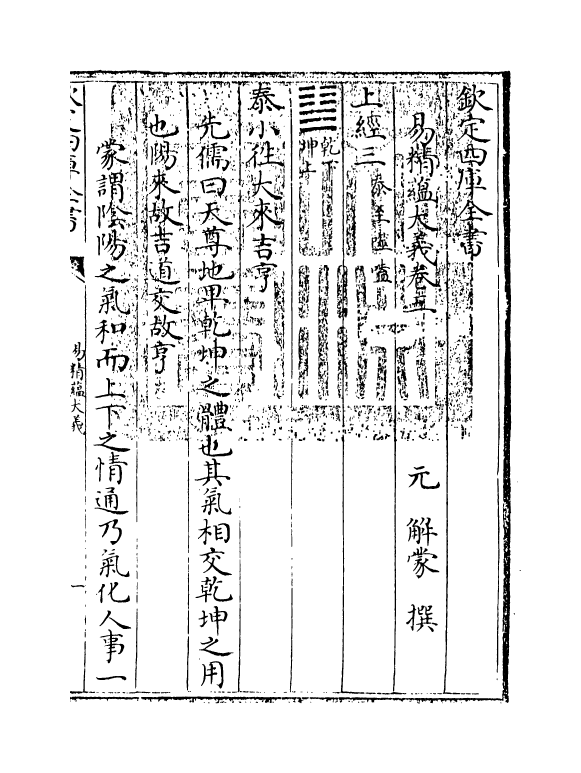 欽定四庫全書
易精蘊大義卷三
元 解蒙 撰
上經三 泰至噬嗑
乾下
坤上
泰小往大來吉亨
先儒曰天尊地卑乾坤之體也其氣相交乾坤之用
也陽來故吉道交故亨
蒙謂陰陽之氣和而上下之情通乃氣化人事一
易精蘊大義
一